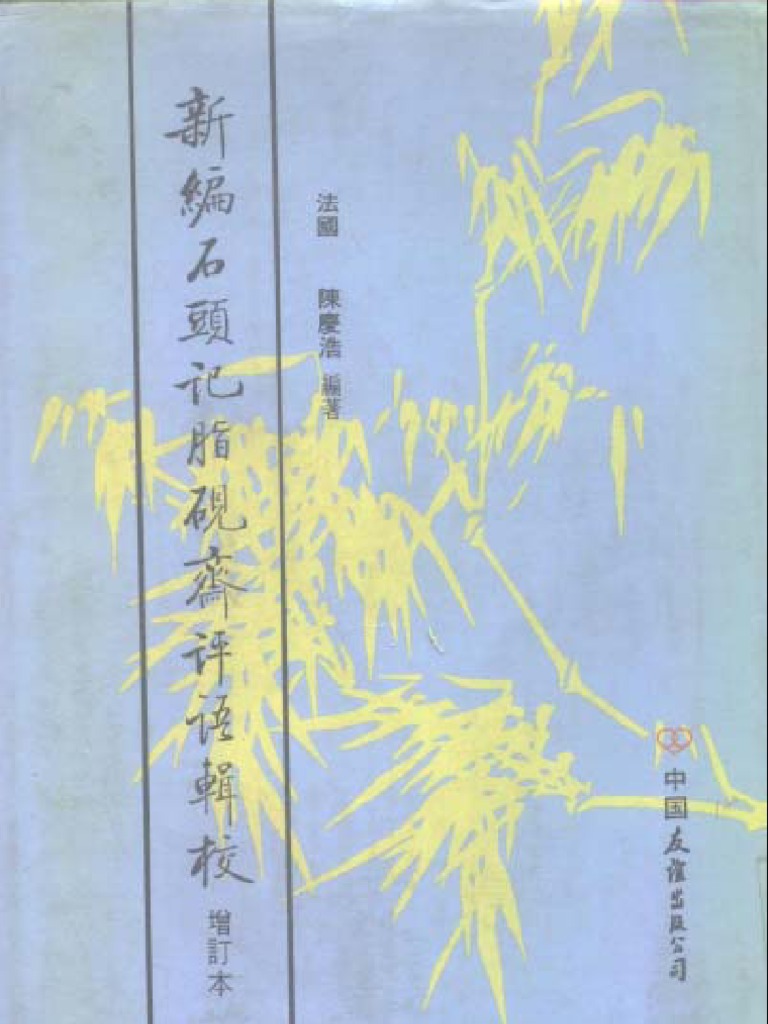 新編石頭记脂硯齋评语輯校 增訂本
法國 陳慶浩 編著
中国友谊出版公司